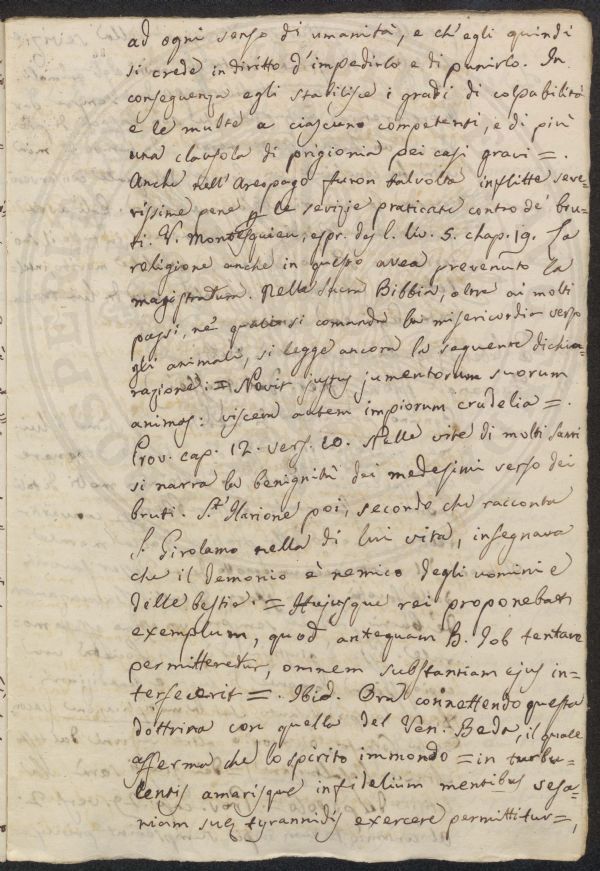 ad ogni senso di umanità, e ch'egli quindi
si crede in diritto d'impedirlo e di punirlo. In
conseguenza egli stabilisce i gradi di colpabilità
e le multe a ciascuno competenti, e di più
una clausola di prigionia pei casi gravi =.
Anche nell'Areopago furon talvolta inflitte seve-
rissime pene p le sevizie praticate contro de' bru-
ti. V. Montesquieu, espr. des l. liv. 5. chap. 19. La
religione anche in questo avea prevenuto la
magistratura. Nella Sacra Bibbia, oltre ai molti
passi, ne' quali si comanda la misericordia verso
gli animali, si legge ancora la seguente dichia-
razione: = Novit justus jumentorum suorum
animas: viscera autem impiorum crudelia =.
Prov. cap. 12. vers. 10. Nelle vite di molti Santi
si narra la benignità dei medesimi verso dei
bruti. S.t Ilarione poi, secondo che racconta
S. Girolamo nella di lui vita, insegnava
che il demonio è nemico degli uomini e
delle bestie. = Hujusque rei proponebat
exemplum, quod antequam B. Job tentare
permitteretur, omnem substantiam ejus in-
terfecerit =. Ibid. Ora connettendo questa
dottrina con quella del Ven. Beda, il quale
afferma che lo spirito immondo = in turbu-
lentis amarisque infidelium mentibus vesa-
niam suę tyrannidis exercere permittitur =,